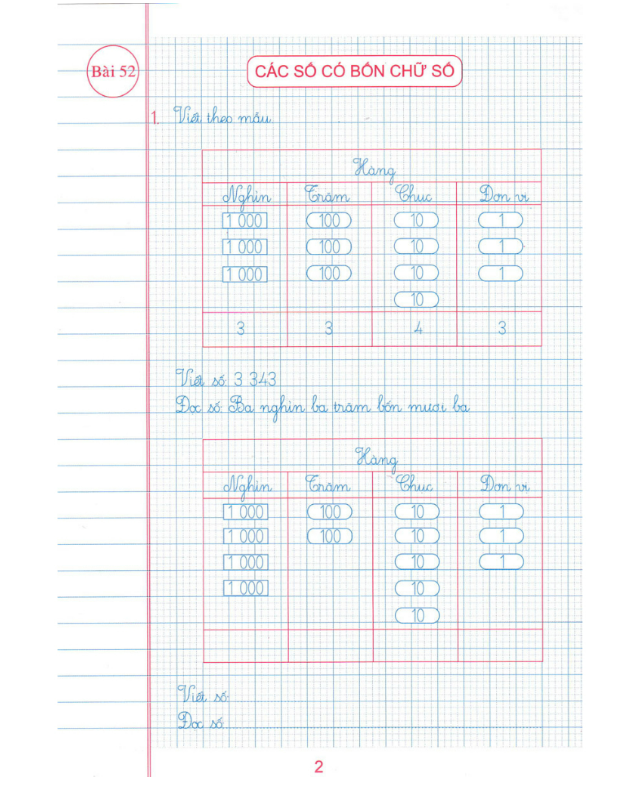 Bài 52
CÁC SỐ CÓ BỐN CHỮ SỐ
1. Viết theo mẫu
Hàng
Nghìn Trăm Chục Đơn vị
1 000 100 10 1
1 000 100 10 1
1 000 100 10 1
10
3 3 4 3
Viết số: 3 343
Đọc số: Ba nghìn ba trăm bốn mươi ba
Hàng
Nghìn Trăm Chục Đơn vị
1 000 100 10 1
1 000 100 10 1
1 000 10 1
1 000 10
10
Viết số:
Đọc số:
2